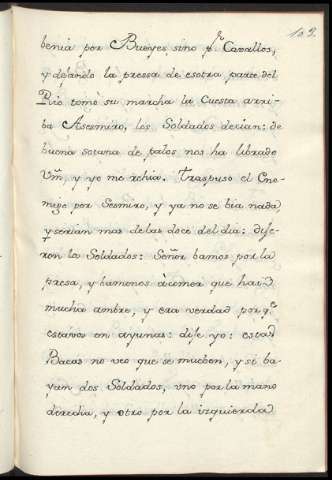 102.
benia por Bueyes sino pr. Cavallos,
y dejando la pressa de esotra parte del
Rio tomò su marcha la Cuesta arri-
ba Asesmiro, los Soldados decian: de
buena sotana de palos nos ha librado
Vm, y yo me rehia. Traspuso el Ene-
migo por Sesmiro, y ya no se bia nada,
y serian mas de las doce del dia: dije-
ron los Soldados: Señor bamos por la
presa, y bamonos à comer que hai
mucha ambre, y era verdad porqe.
estavan en ayunas: dije yo: estad
Bacas no veo que se mueben, y si ba-
yan dos Soldados, uno por la mano
derecha, y otro por la izquierda